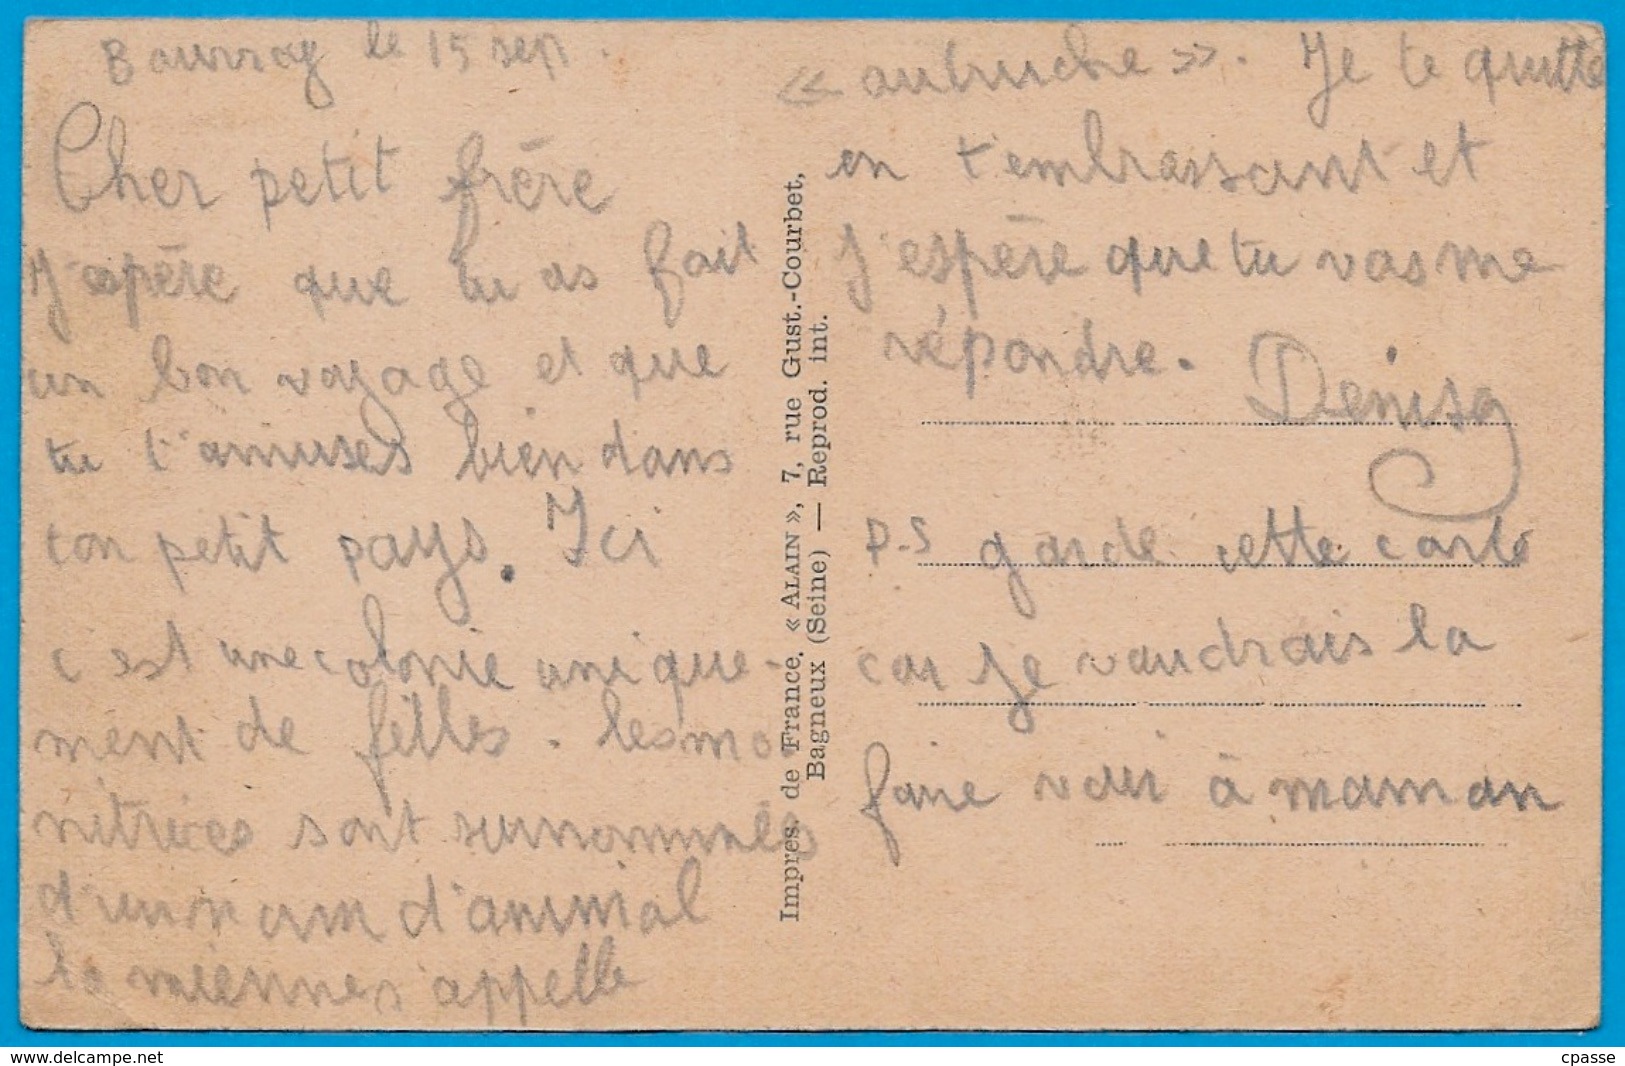 Bournay le 15 sep.
Cher petit frère
J'espère que tu as fait
un bon voyage et que
tu t'amuses bien dans
ton petit pays. Ici
c'est une colonie unique-
ment de filles. les mo-
nitrices sont surnommées
d'un nom d'animal
la mienne s'appelle
« autruche ». Je te quitte
en t'embrassant et
j'espère que tu vas me
répondre.
Denise
P.S garde cette carte
car je voudrais la
faire voir à maman
Impres. de France. « ALAIN », 7, rue Gust.-Courbet,
Bagneux (Seine) — Reprod. int.
www.delcampe.net
cpasse